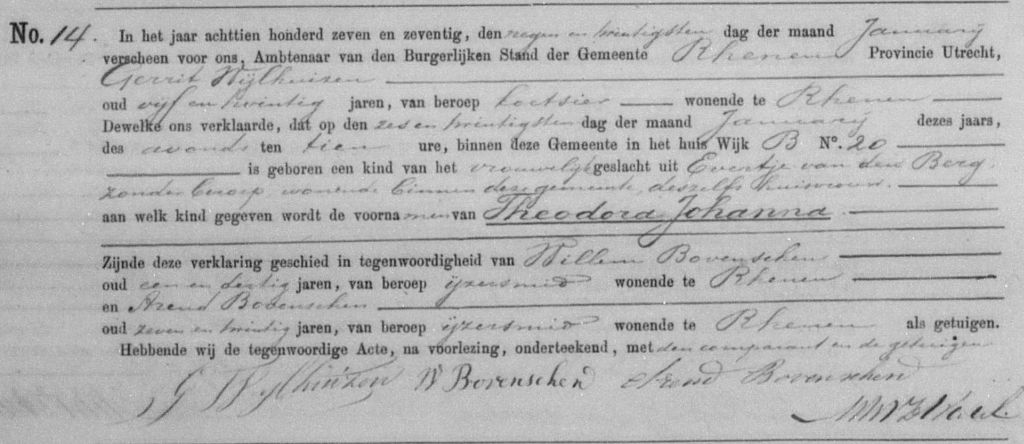 No. 14. In het jaar achttien honderd zeven en zeventig, den negen en twintigsten dag der maand Januarij
verscheen voor ons, Ambtenaar van den Burgerlijken Stand der Gemeente Rhenen Provincie Utrecht,
Gerrit Wijlhuizen
oud vijf en twintig jaren, van beroep koetsier wonende te Rhenen
Dewelke ons verklaarde, dat op den zes en twintigsten dag der maand Januarij dezes jaars,
des avonds ten tien ure, binnen deze Gemeente in het huis Wijk B No. 20
is geboren een kind van het vrouwelijk geslacht uit Evertje van den Berg
zonder beroep, wonende binnen deze gemeente, deszelfs huisvrouw.
aan welk kind gegeven wordt de voornamen van Theodora Johanna
Zijnde deze verklaring geschied in tegenwoordigheid van Willem Bovenschen
oud een en dertig jaren, van beroep ijzersmid wonende te Rhenen
en Arend Bovenschen
oud zeven en twintig jaren, van beroep ijzersmid wonende te Rhenen als getuigen.
Hebbende wij de tegenwoordige Acte, na voorlezing, onderteekend, met den comparant en de getuigen
G Wijlhuizen W Bovenschen Arend Bovenschen